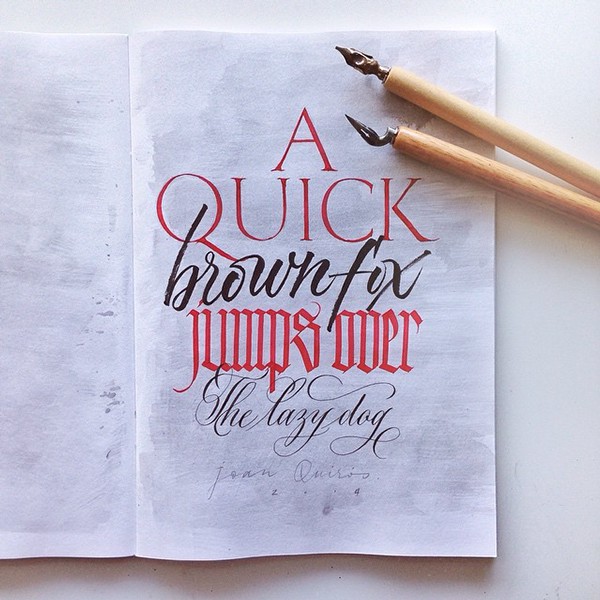 A
QUICK
brown fox
jumps over
The lazy dog
joan Quirós